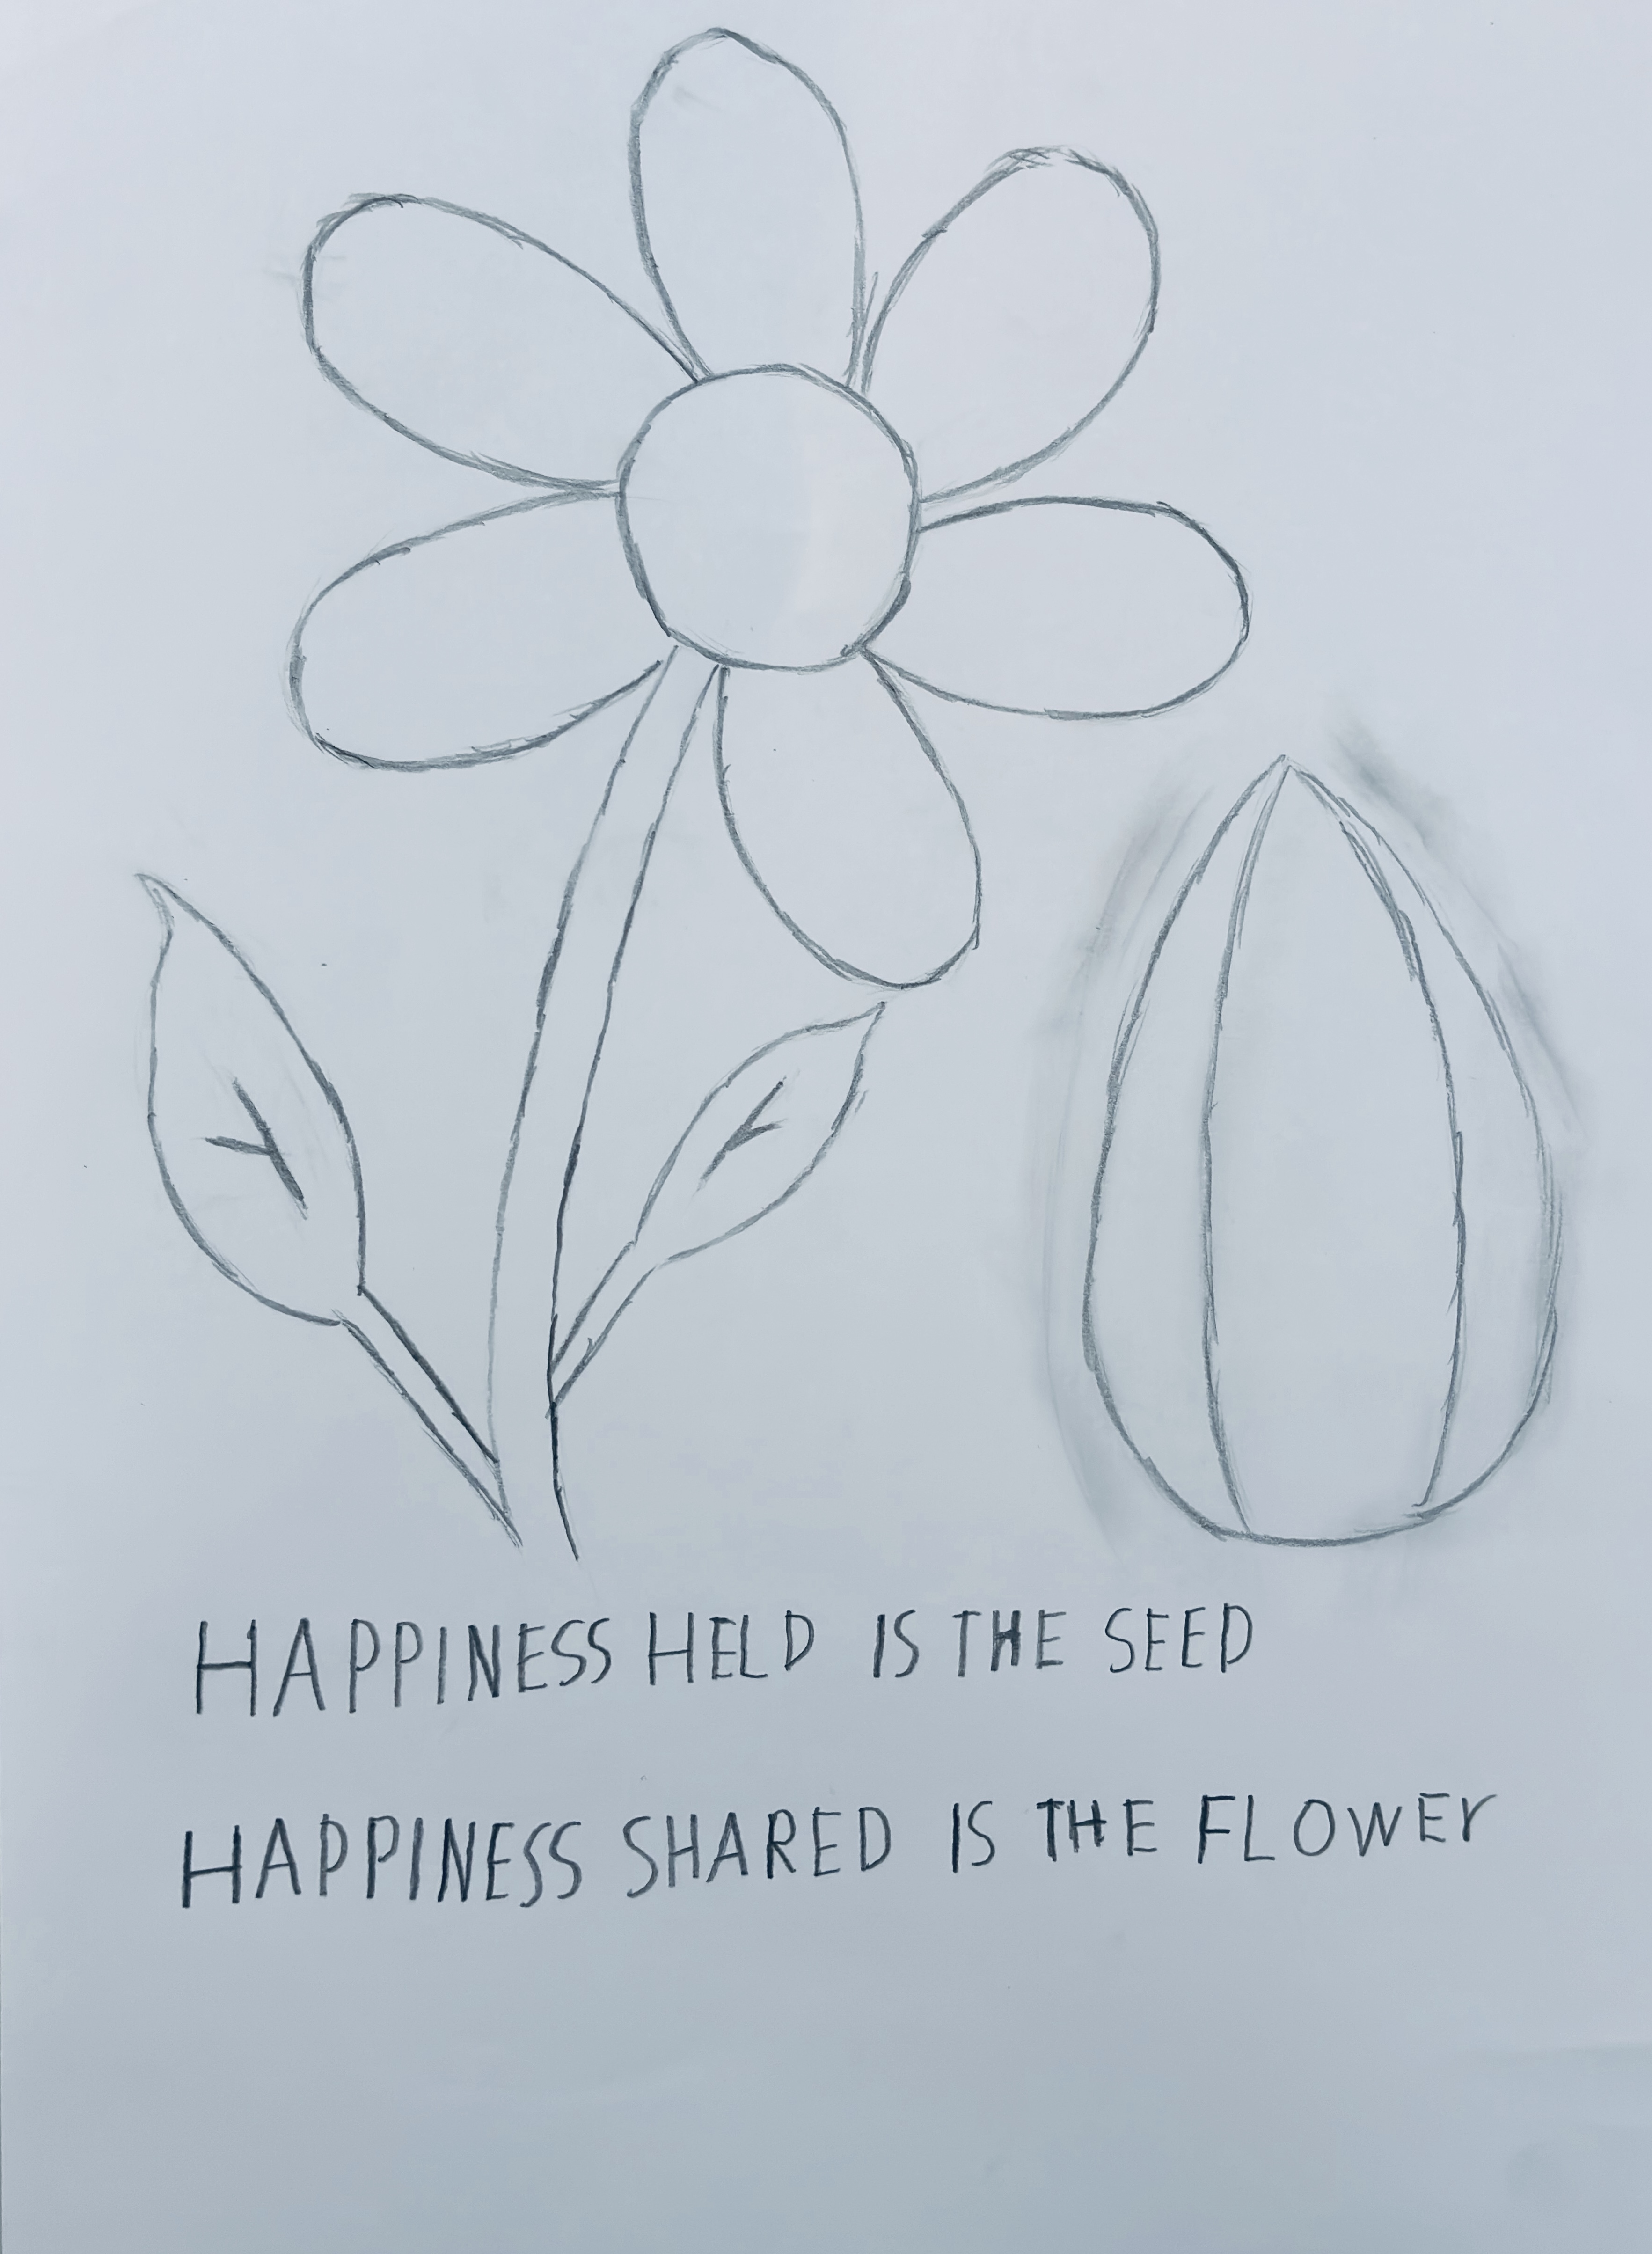 HAPPINESS HELD IS THE SEED
HAPPINESS SHARED IS THE FLOWEr